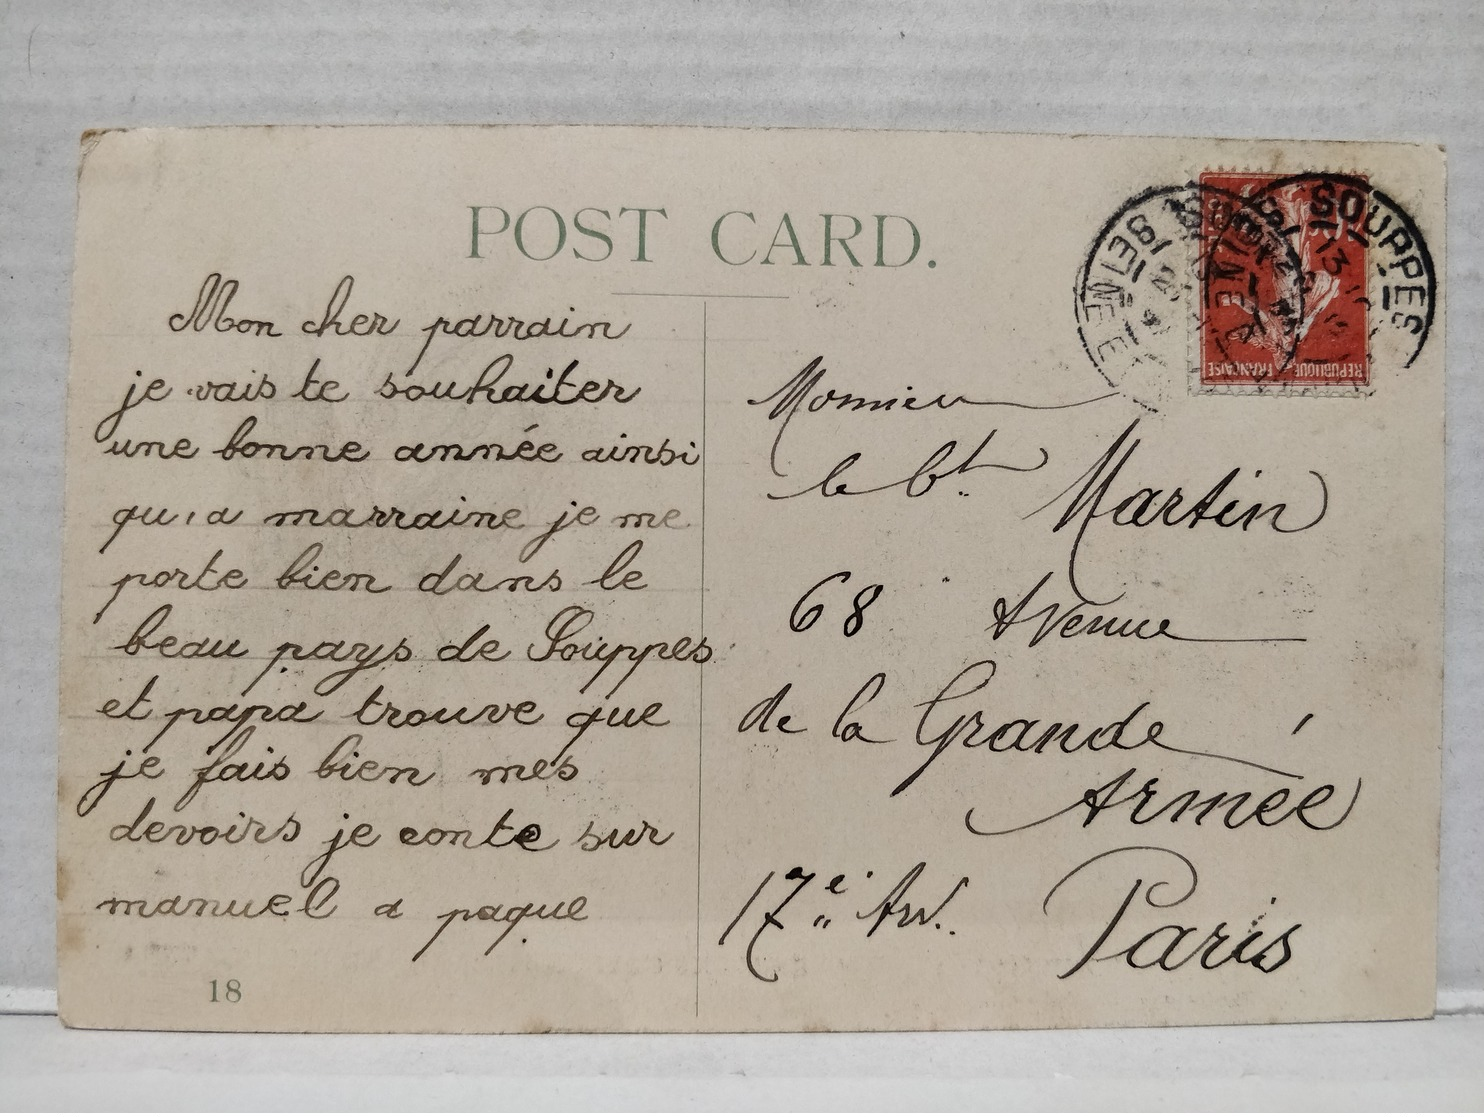 POST CARD.
Mon cher parrain
je vais te souhaiter
une bonne année ainsi
qu'a marraine je me
porte bien dans le
beau pays de Souppes
et papa trouve que
je fais bien mes
devoirs je conte sur
manuel a paque
18
Monsieur
le Ct. Martin
68 Avenue
de la Grande
Armée
17e Arr. Paris
SOUPPES
SEINE ET
13
REPUBLIQUE FRANÇAISE